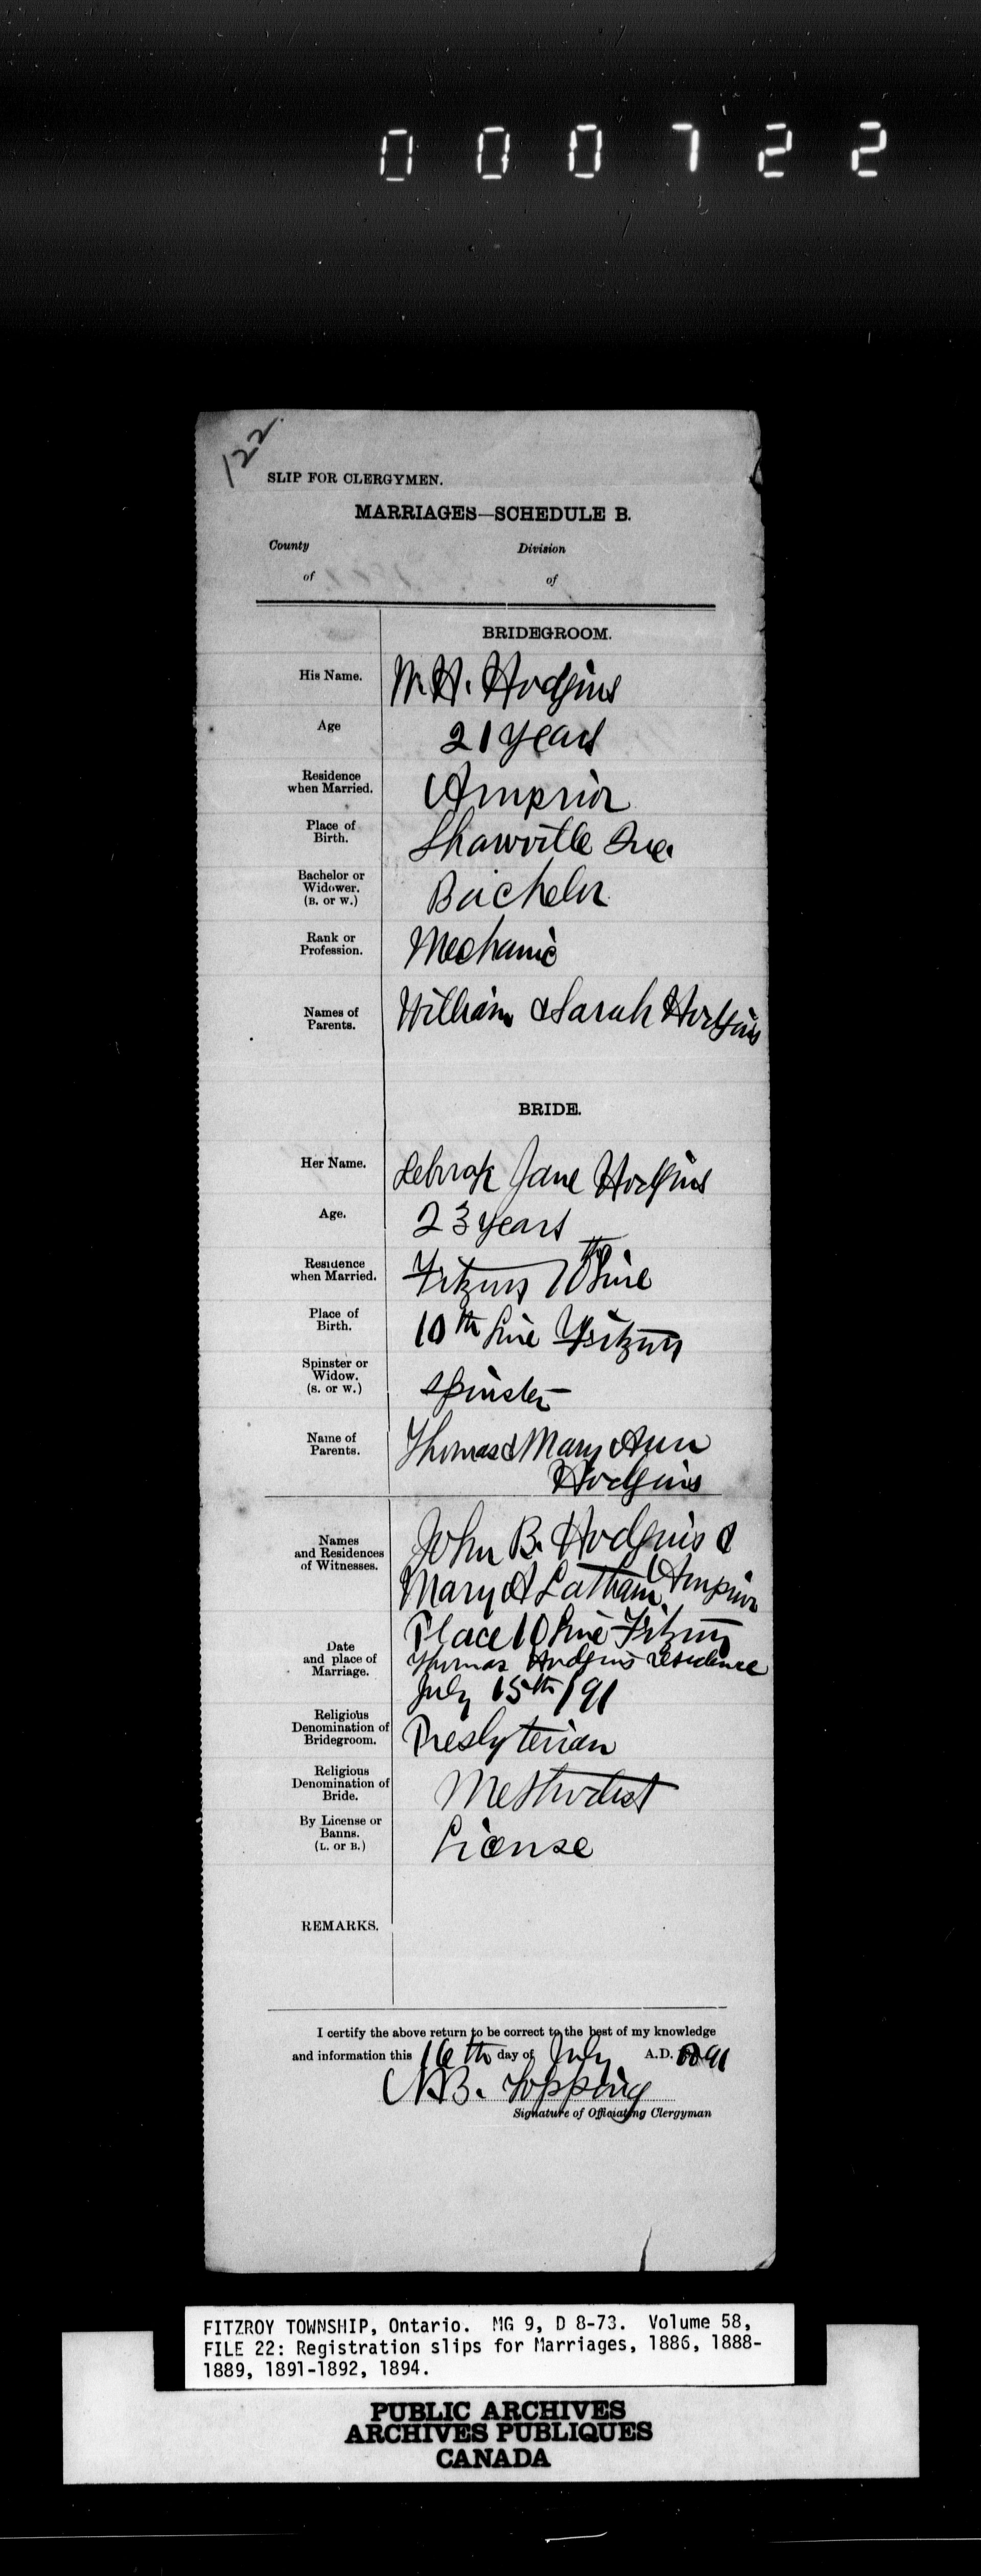 000722
122.
SLIP FOR CLERGYMEN.
MARRIAGES—SCHEDULE B.
County Division
of of
BRIDEGROOM.
His Name. H. Hodgins
Age 21 years
Residence
when Married. Arnprior
Place of
Birth. Shawville Que.
Bachelor or
Widower.
(B. or W.) Bachelor
Rank or
Profession. Mechanic
Names of
Parents. William & Sarah Hodgins
BRIDE.
Her Name. Deborah Jane Hodgins
Age. 23 years
Residence
when Married. Fitzroy 10th Line
Place of
Birth. 10th Line Fitzroy
Spinster or
Widow.
(S. or W.) Spinster
Name of
Parents. Thomas & Mary Ann
Hodgins
Names
and Residences
of Witnesses. John B. Hodgins &
Mary A Latham Arnprior
Date
and place of
Marriage. Place 10 Line Fitzroy
Thomas Hodgins residence
July 15th /91
Religious
Denomination of
Bridegroom. Presbyterian
Religious
Denomination of
Bride. Methodist
By License or
Banns.
(L. or B.) License
REMARKS.
I certify the above return to be correct to the best of my knowledge
and information this 16th day of July A.D. 1891
N.B. Topping
Signature of Officiating Clergyman
FITZROY TOWNSHIP, Ontario. MG 9, D 8-73. Volume 58,
FILE 22: Registration slips for Marriages, 1886, 1888-
1889, 1891-1892, 1894.
PUBLIC ARCHIVES
ARCHIVES PUBLIQUES
CANADA